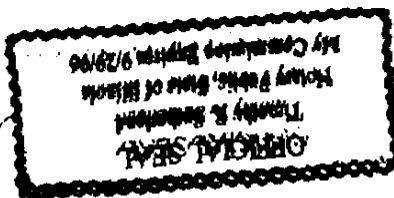 OFFICIAL SEAL
Timothy R. Sutherland
Notary Public, State of Illinois
My Commission Expires 9/29/96